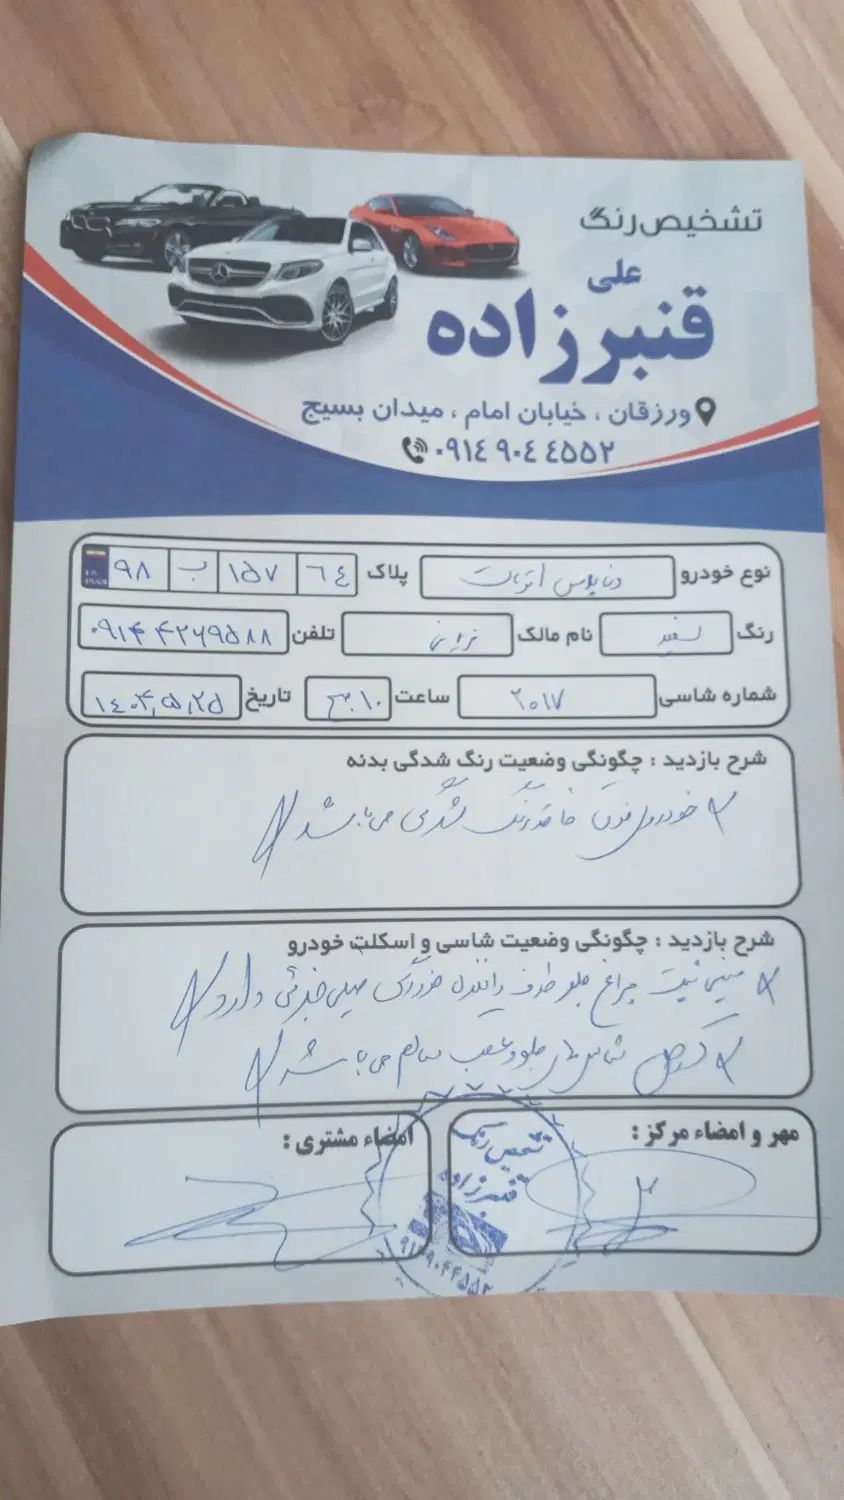 تشخیص رنگ
علی
قنبرزاده
ورزقان ، خیابان امام ، میدان بسیج
۰۹۱۴ ۹۰۴ ۴۵۵۲
نوع خودرو دنا پلاس اتومات پلاک ۹۸ ب ۱۵۷ ۶۴
رنگ سفید نام مالک تلفن ۰۹۱۴ ۴۲۶۹۵۸۸
شماره شاسی ۲۰۱۷ ساعت ۱۰ تاریخ ۱۴۰۴,۵,۲۵
شرح بازدید : چگونگی وضعیت رنگ شدگی بدنه
خودروی فوق فاقد رنگ شدگی می باشد
شرح بازدید : چگونگی وضعیت شاسی و اسکلت خودرو
سینی چراغ جلو طرف راننده خوردگی خیلی جزئی دارد
شاسی های جلو و عقب سالم می باشد
مهر و امضاء مرکز :
امضاء مشتری :
تشخیص رنگ
قنبرزاده
۰۹۱۴۹۰۴۴۵۵۲